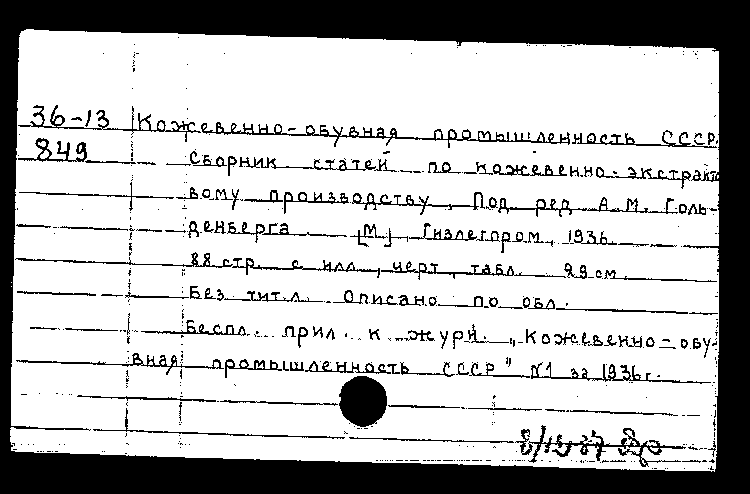 36-13 Кожевенно-обувная промышленность СССР.
849 Сборник статей по кожевенно-экстракто
вому производству, Под ред А.М. Голь-
денберга [М], Гизлегпром, 1936.
88 стр. с илл., черт, табл. 29 см.
Без тит.л. Описано по обл.
Беспл. прил. к журн. „Кожевенно-обу-
вная промышленность СССР" №1 за 1936г.